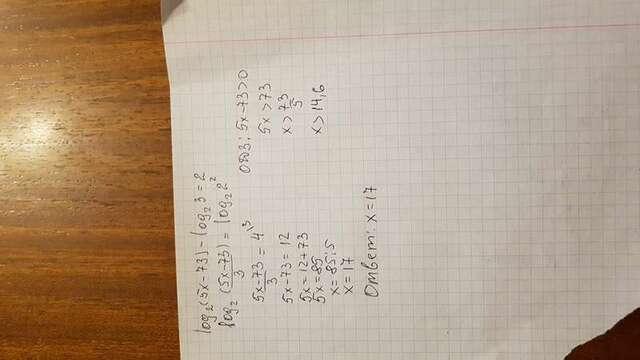 log₂(5x-73)-log₂3=2
log₂ (5x-73)/3 = log₂2²
(5x-73)/3 = 4 \3
5x-73=12
5x=12+73
5x=85
x=85:5
x=17
Ответ: x=17
ОДЗ: 5x-73>0
5x>73
x> 73/5
x>14,6